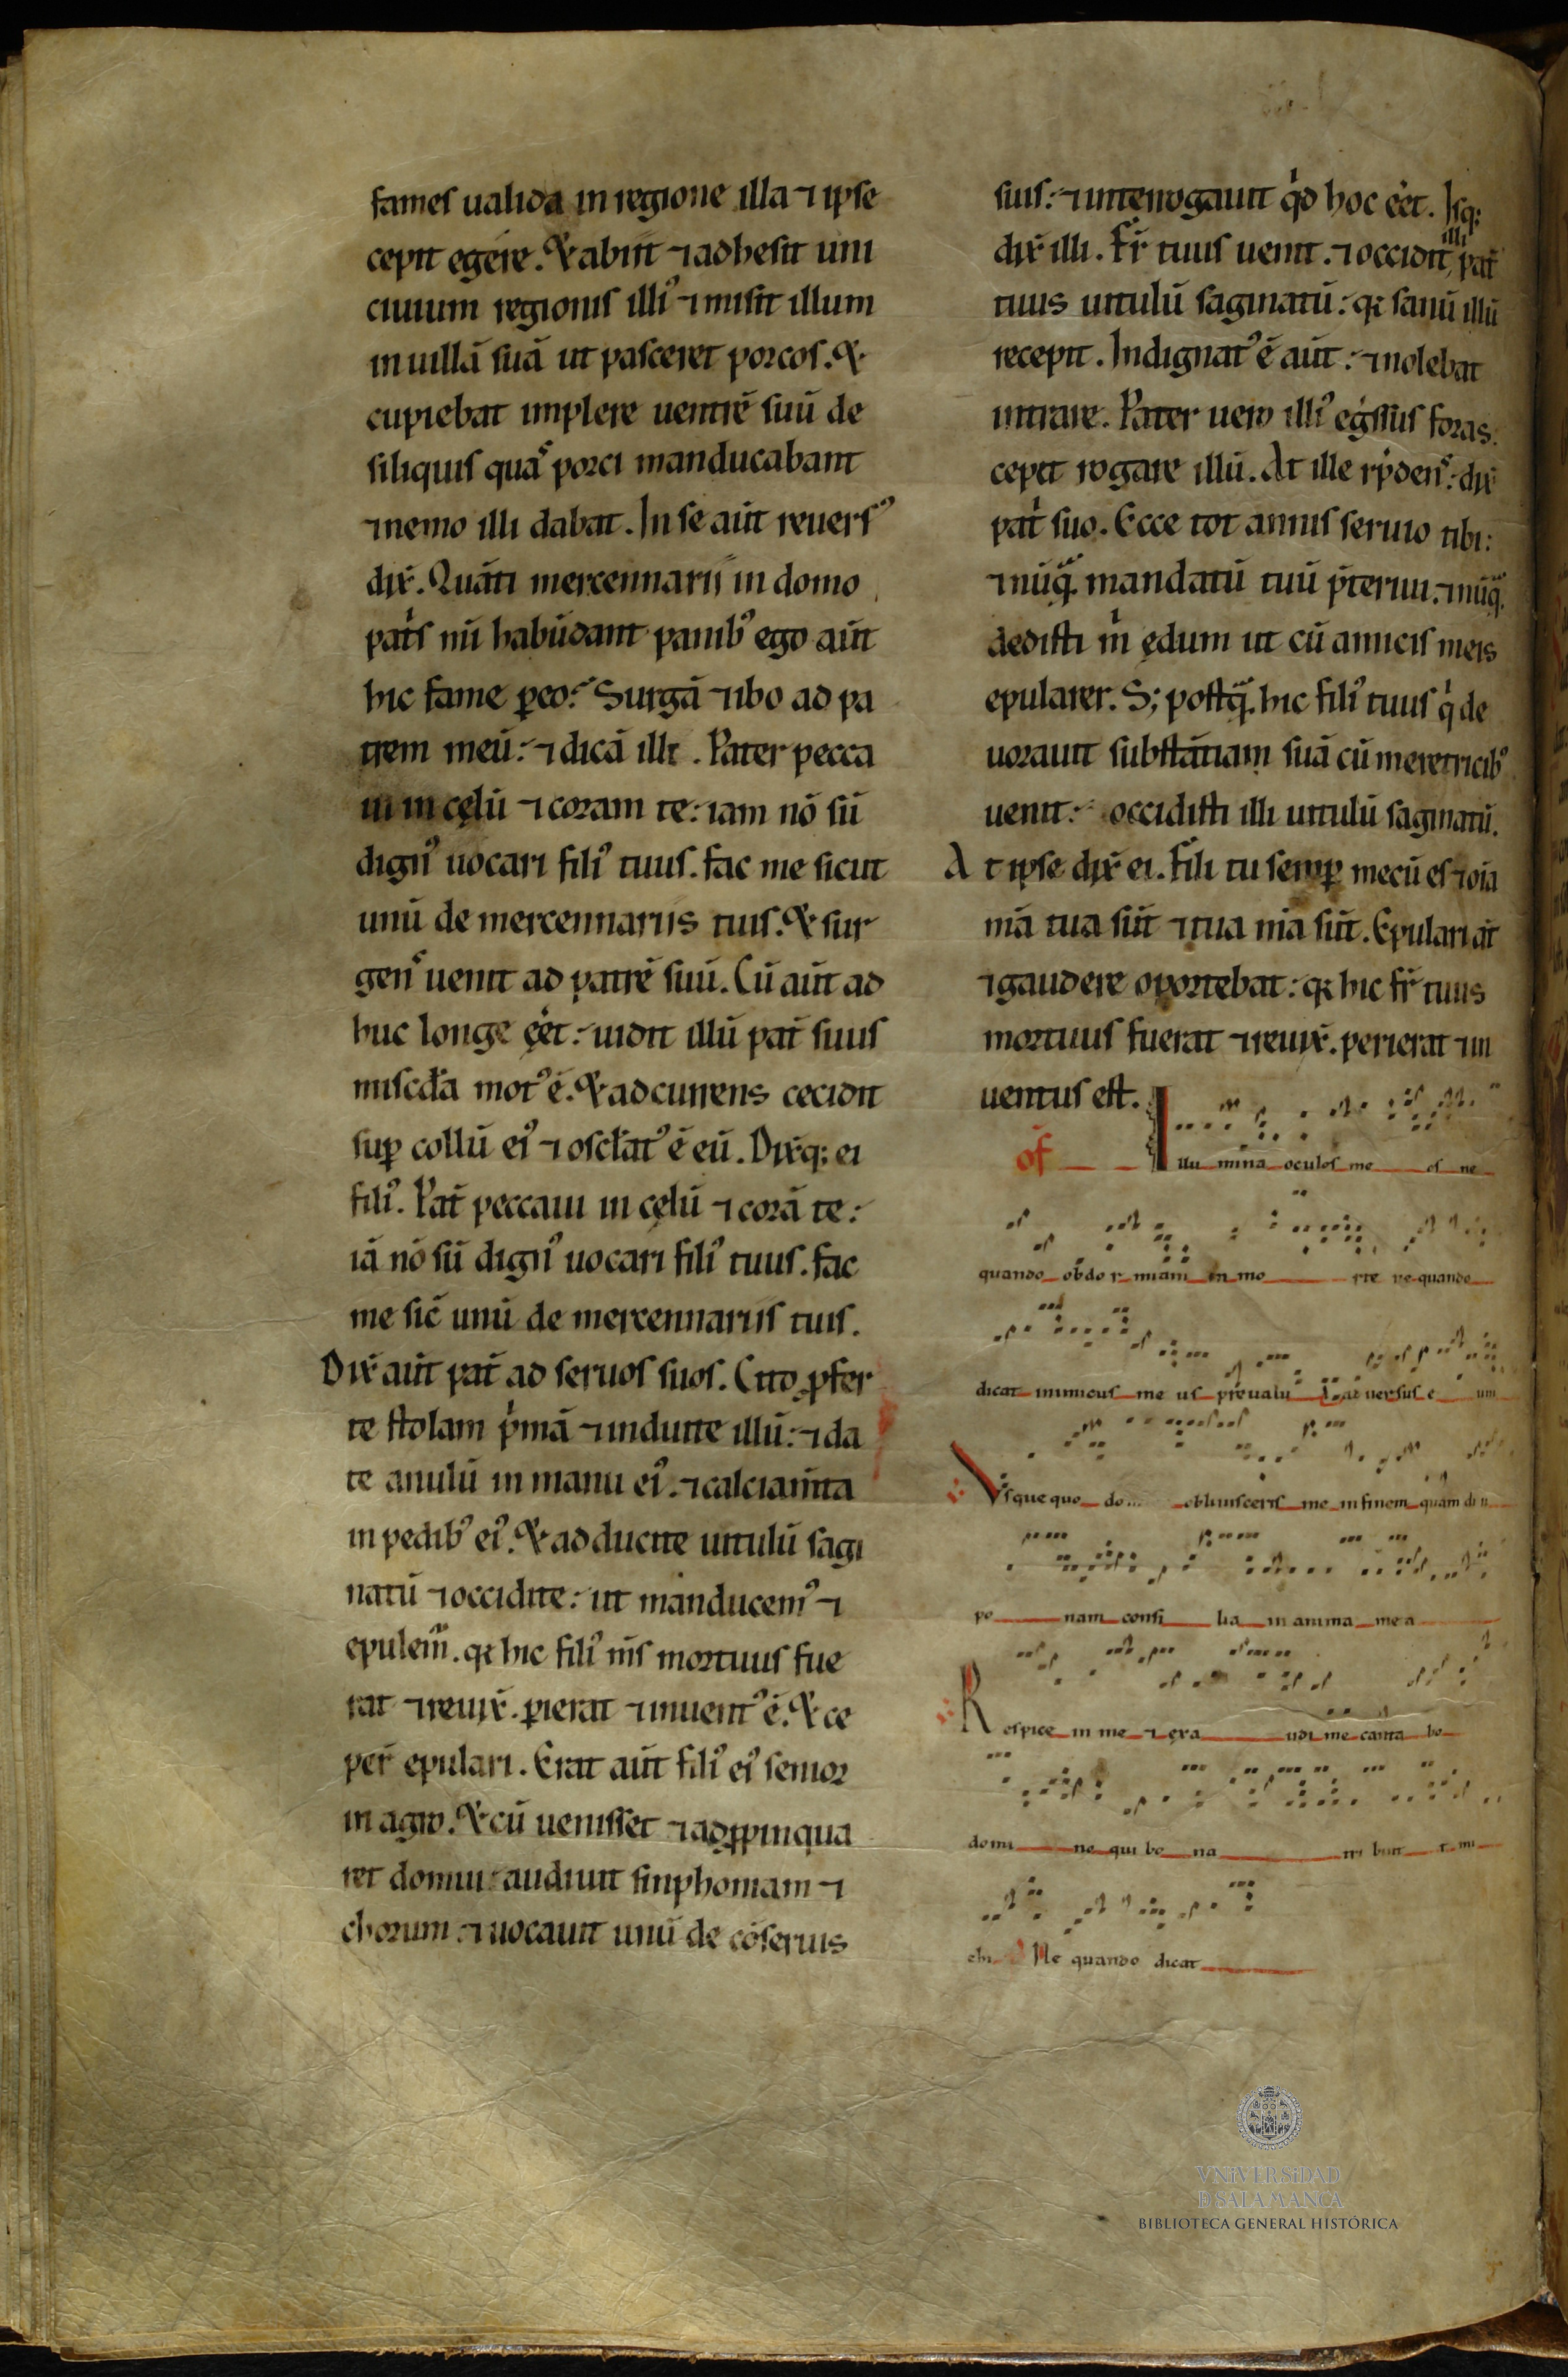 fames ualida in regione illa ⁊ ipse
cepit egere. & abiit ⁊ adhesit uni
ciuium regionis illi᾽ ⁊ misit illum
in uillā suā ut pasceret porcos. &
cupiebat implere uentrē suū de
siliquis quas porci manducabant
⁊ nemo illi dabat. In se aūt reuers᾽
dix̄. Quāti mercennarii in domo
pat̄s m̄i habūdant panib᾽ ego aūt
hic fame ꝑeo. Surgā ⁊ ibo ad pa
trem meū: ⁊ dicā illi. Pater pecca
ui in cęlū ⁊ coram te: iam nō sū
dign᾽ uocari fili᾽ tuus. fac me sicut
unū de mercennariis tuis. & sur
gens uenit ad patrē suū. Cū aūt ad
huc longe eēt: uidit illū pat̄ suus
miscd̄a mot᾽ ē. & adcurrens cecidit
suꝑ collū ei᾽ ⁊ oscl̄at᾽ ē eū. Dix̄q; ei
fili᾽. Pat̄ peccaui in cęlū ⁊ corā te:
iā nō sū dign᾽ uocari fili᾽ tuus. fac
me sic̄ unū de mercennariis tuis.
Dix̄ aūt pat̄ ad seruos suos. Cito ꝓfer
te stolam p̄mā ⁊ induite illū: ⁊ da
te anulū in manu ei᾽. ⁊ calciam̄ta
in pedib᾽ ei᾽. & adducite uitulū sagi
natū ⁊ occidite: ut manducem᾽ ⁊
epulem̄. qꝛ hic fili᾽ m̄s mortuus fue
rat ⁊ reuix̄. ꝑierat ⁊ inuent᾽ ē. & ce
per̄ epulari. Erat aūt fili᾽ ei᾽ senior
in agro. & cū uenisset ⁊ adꝓpinqua
ret domui: audiuit sinphoniam ⁊
chorum: ⁊ uocauit unū de cōseruis
suis: ⁊ interrogauit qͥd hoc eēt. Isq;
dix̄ illi. Fr̄ tuus uenit. ⁊ occidit illi pat̄
tuus uitulū saginatū: qꝛ sanū illū
recepit. Indignat᾽ ē aūt: ⁊ nolebat
intrare. Pater uero illi᾽ eḡssus foras.
cepit rogare illū. At ille rp̄dens: dix̄
pat̄ suo. Ecce tot annis seruio tibi:
⁊ nūqᵃ mandatū tuū p̄teriui. ⁊ nūqᵃ
dedisti m̄ ędum ut cū amicis meis
epularer. S; postqᵃ hic fili᾽ tuus qͥ de
uorauit substātiam suā cū meretricib᾽
uenit: occidisti illi uitulū saginatū.
At ipse dix̄ ei. Fili tu semꝑ mecū es ⁊ oīa
m̄a tua sūt ⁊ tua m̄a sūt. Epulari āt
⁊ gaudere oportebat: qꝛ hic fr̄ tuus
mortuus fuerat ⁊ reuix̄. perierat ⁊ in
uentus est.
of Illu mina oculos me os ne
quando obdor miam in mo rte ne quando
dicat inimicus me us preualu i ad uersus e um
Vsque quo do... obliuisceris me in finem quamdiu
po nam consi lia in anima mea
Respice in me ⁊ exa udi me canta bo
domi ne qui bo na tri buit mi
chi Ne quando dicat
VNiVERSiDAD
D SALAMANCA
BIBLIOTECA GENERAL HISTÓRICA